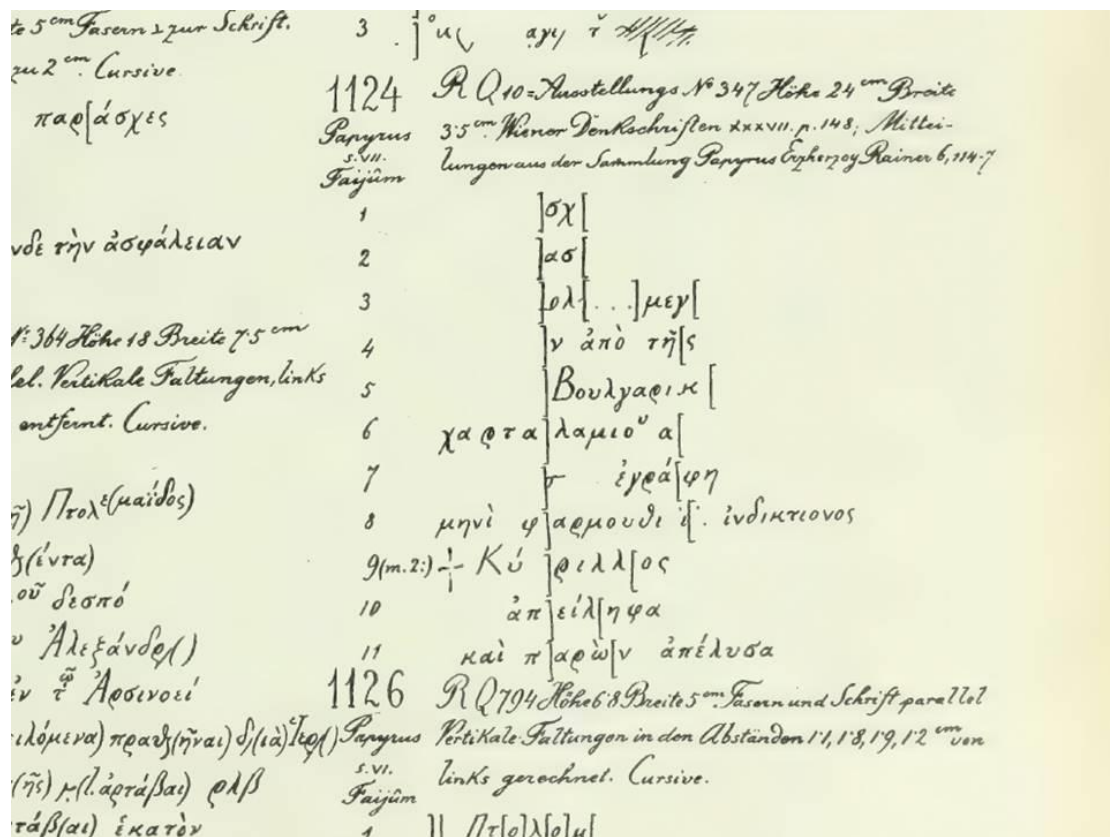 te 5 cm Fasern ⊥ zur Schrift.
zu 2 cm. Cursive.
παρ[άσχες
νδε τὴν ἀσφάλειαν
Nº 364 Höhe 18 Breite 7·5 cm
lel. Vertikale Faltungen, links
entfernt. Cursive.
ῆ) Πτολε(μαΐδος)
θ(έντα)
οῦ δεσπό
υ Ἀλεξάνδρ()
ἐν τῷ Ἀρσινοεί
ιλόμενα) πραθ(ῆναι) δ(ιὰ) Ἱερ()
(ῆς) (l. ἀρτάβαι) ρλβ
τάβ(αι) ἑκατὸν
3
1124 R Q 10 = Ausstellungs Nº 347 Höhe 24 cm Breite
Papyrus 3·5 cm. Wiener Denkschriften XXXVII. p. 148; Mittei-
s. VII. Faijûm lungen aus der Sammlung Papyrus Erzherzog Rainer 6, 114-7
1 ]σχ[
2 ]ασ[
3 ]ολ[...]μεγ[
4 ]ν ἀπὸ τῆ[ς
5 ]Βουλγαρικ[
6 χαρτα]λαμιοʋ α[
7 ἐγρά[φη
8 μηνὶ φ]αρμουθι ι[. ἰνδικτιονος
9 (m. 2:) ⳨ Κύ]ριλλ[ος
10 ἀπ]είλ[ηφα
11 καὶ π]αρὼ[ν ἀπέλυσα
1126 R Q 794 Höhe 6·8 Breite 5 cm. Fasern und Schrift parallel
Papyrus Vertikale Faltungen in den Abständen 1·1, 1·8, 1·9, 1·2 cm von
s. VI. Faijûm links gerechnet. Cursive.
1 ]] Πτ[ο]λ[ο]μ[